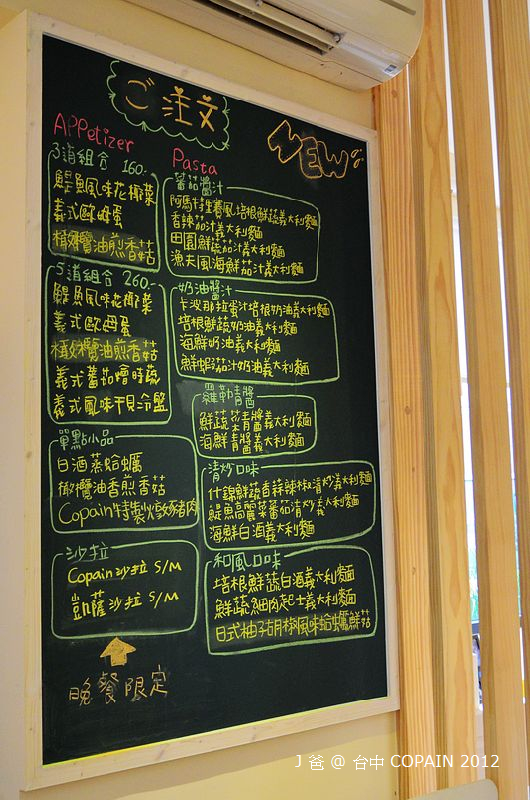 ご注文
NEW
APPetizer
3道組合 160.-
鯷魚風味花椰菜
義式歐姆蛋
橄欖油煎香菇
5道組合 260.-
鯷魚風味花椰菜
義式歐姆蛋
橄欖油煎香菇
義式蕃茄燴時蔬
義式風味干貝冷盤
單點小品
白酒蒸蛤蠣
橄欖油香煎香菇
Copain特製火燉豬肉
沙拉
Copain沙拉 S/M
凱薩沙拉 S/M
晚餐限定
Pasta
蕃茄醬汁
阿馬特里賽風培根鮮蔬義大利麵
香辣茄汁義大利麵
田園鮮蔬茄汁義大利麵
漁夫風海鮮茄汁義大利麵
奶油醬汁
卡波那拉蛋汁培根奶油義大利麵
培根鮮蔬奶油義大利麵
海鮮奶油義大利麵
鮮蝦茄汁奶油義大利麵
羅勒青醬
鮮蔬菜青醬義大利麵
海鮮青醬義大利麵
清炒口味
什錦鮮蔬香蒜辣椒清炒義大利麵
鯷魚高麗菜蕃茄清炒義大利麵
海鮮白酒義大利麵
和風口味
培根鮮蔬白酒義大利麵
鮮蔬雞肉起士義大利麵
日式柚子胡椒風味蛤蠣鮮菇
J 爸 @ 台中 COPAIN 2012